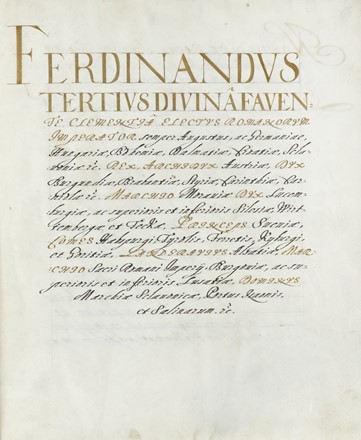 FERDINANDVS
TERTIVS DIVINÂ FAVEN=
TE CLEMENTIÂ ELECTVS ROMANORVM
IMPERATOR semper Augustus, ac Germaniae,
Hungariae, Bohemiae, Dalmatiae, Croatiae, Scla=
voniae &c. REX ARCHIDVX Austriae, DVX
Burgundiae, Brabantiae, Styriae, Carinthiae, Car=
nioliae &c. MARCHIO Moraviae DVX Lucem=
burgiae, ac superioris et inferioris Silesiae, Wirt=
tembergae et Teckae, PRINCEPS Sueviae,
COMES Habspurgi, Tyrolis, Ferretis, Kyburgi,
et Goritiae, LANDGRAVIVS Alsatiae, MAR=
CHIO Sacri Romani Imperij, Burgoviae, ac su=
perioris et inferioris Lusatiae, DOMINVS
Marchiae Sclavonicae, Portus Naonis,
et Salinarum. &c.